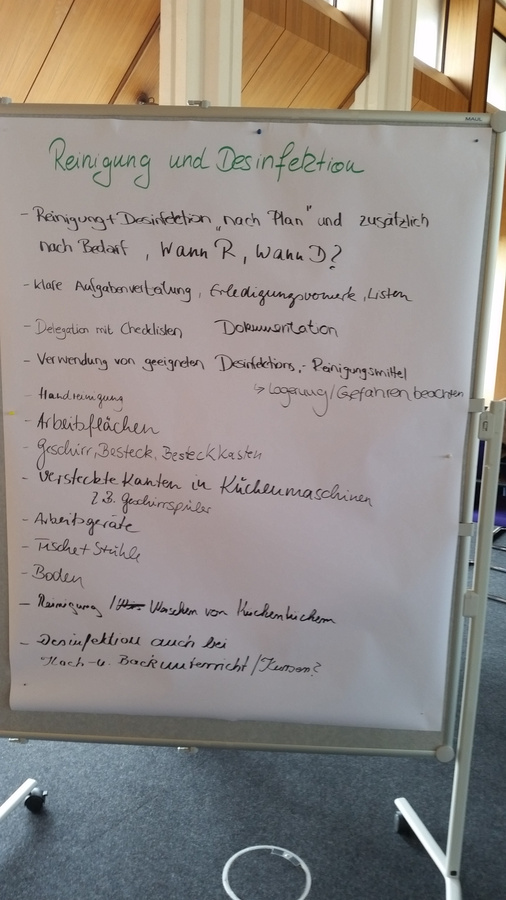 MAUL
Reinigung und Desinfektion
- Reinigung + Desinfektion „nach Plan" und zusätzlich
nach Bedarf, Wann R, Wann D?
- klare Aufgabenverteilung, Erledigungsvermerk, Listen
- Delegation mit Checklisten Dokumentation
- Verwendung von geeigneten Desinfektions-, Reinigungsmittel
↳ Lagerung/Gefahren beachten
- Handreinigung
- Arbeitsflächen
- Geschirr, Besteck, Besteckkasten
- Versteckte Kanten in Küchenmaschinen
z.B. Geschirrspüler
- Arbeitsgeräte
- Tische + Stühle
- Boden
- Reinigung / Waschen von Küchentüchern
- Desinfektion auch bei
Koch- u. Backunterricht / Kursen?
-